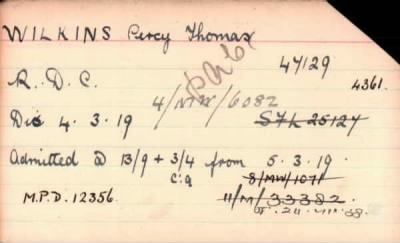 WILKINS Percy Thomas
47/129
R.D.C.
4361.
4/MW/6082
Dis 4.3.19
Admitted @ 13/9 + 3/4 from 5.3.19.
C:9
8/MW/1071
M.P.D. 12356.
11/M/33382.